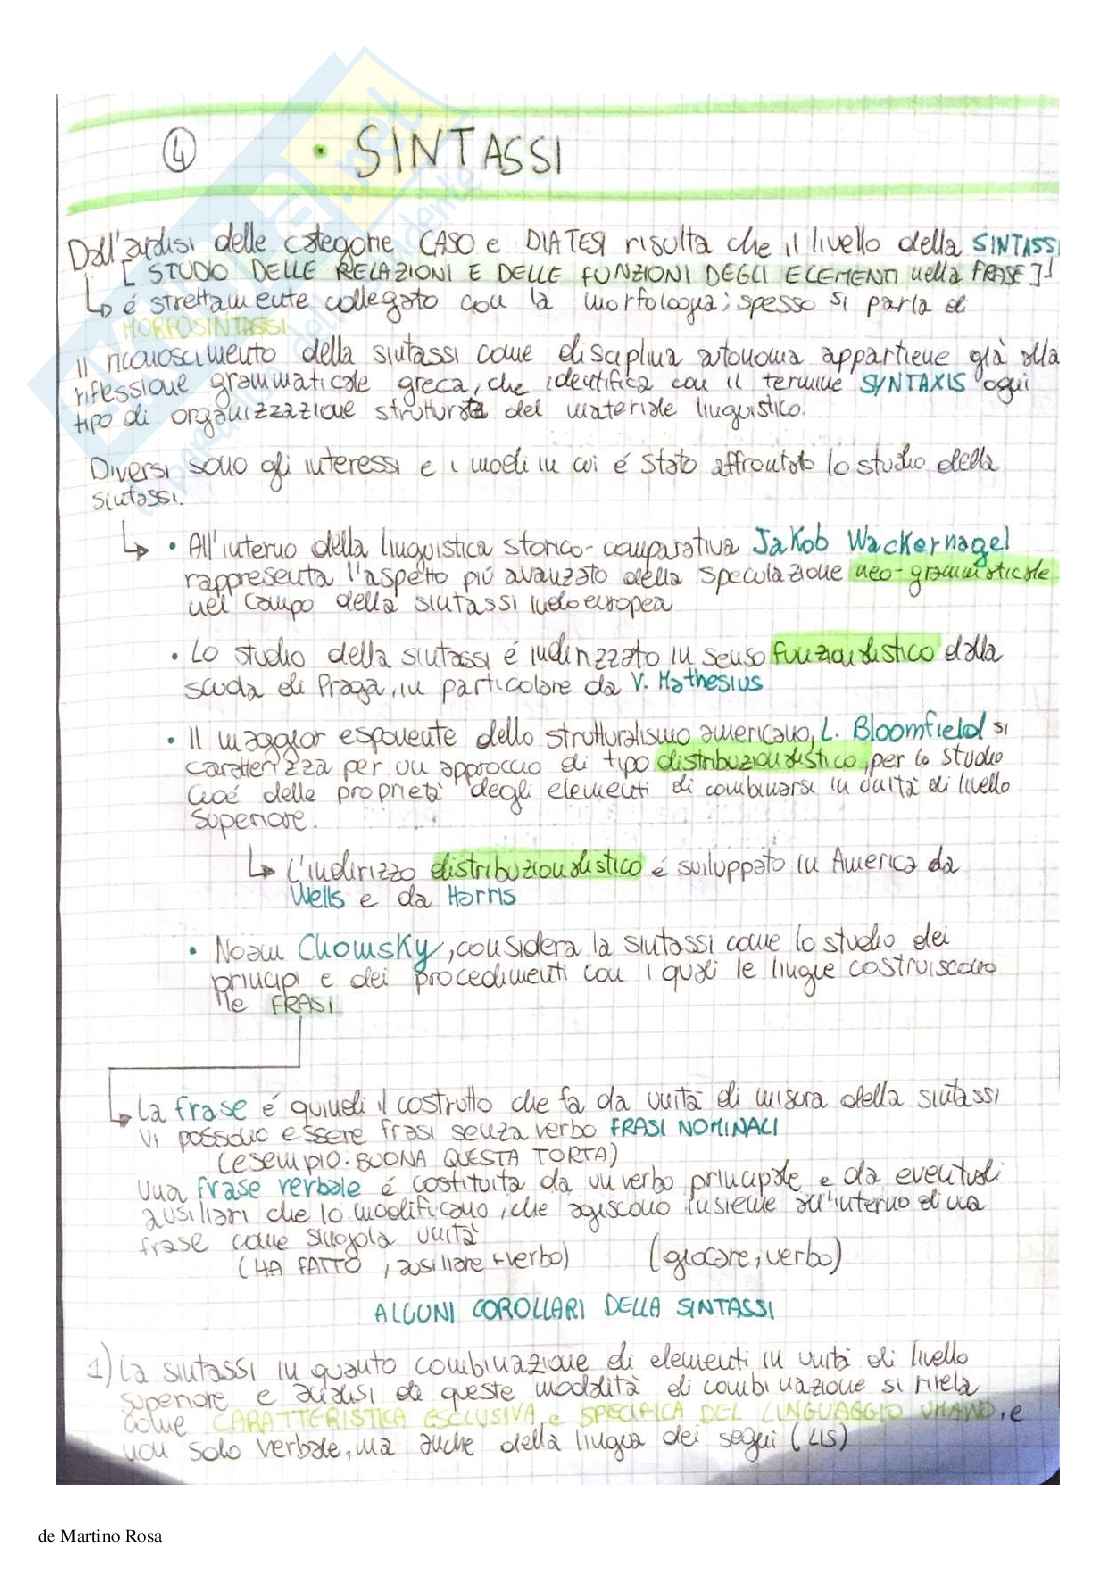 4 • SINTASSI
Dall'analisi delle categorie CASO e DIATESI risulta che il livello della SINTASSI
[STUDIO DELLE RELAZIONI E DELLE FUNZIONI DEGLI ELEMENTI nella FRASE]
↳ é strettamente collegato con la morfologia; spesso si parla di
MORFOSINTASSI
Il riconoscimento della sintassi come disciplina autonoma appartiene già alla
riflessione grammaticale greca, che identifica con il termine SYNTAXIS ogni
tipo di organizzazione strutturata del materiale linguistico.
Diversi sono gli interessi e i modi in cui é stato affrontato lo studio della
sintassi.
↳ • All'interno della linguistica storico-comparativa Jakob Wackernagel
rappresenta l'aspetto piú avanzato della speculazione neo-grammaticale
nel campo della sintassi indoeuropea
• Lo studio della sintassi é indirizzato in senso funzionalistico dalla
scuola di Praga, in particolare da V. Mathesius
• Il maggior esponente dello strutturalismo americano, L. Bloomfield si
caratterizza per un approccio di tipo distribuzionalistico, per lo studio
cioé delle proprietà degli elementi di combinarsi in unità di livello
superiore.
↳ L'indirizzo distribuzionalistico é sviluppato in America da
Wells e da Harris
• Noam Chomsky, considera la sintassi come lo studio dei
principi e dei procedimenti con i quali le lingue costruiscono
le FRASI
↳ La frase é quindi il costrutto che fa da unità di misura della sintassi
Vi possono essere frasi senza verbo FRASI NOMINALI
(ESEMPIO: BUONA QUESTA TORTA)
Una frase verbale é costituita da un verbo principale e da eventuali
ausiliari che lo modificano, che agiscono insieme all'interno di una
frase come singola unità
(HA FATTO, ausiliare + verbo) (giocare, verbo)
ALCUNI COROLLARI DELLA SINTASSI
1) La sintassi in quanto combinazione di elementi in unità di livello
superiore e analisi di queste modalità di combinazione si rivela
come CARATTERISTICA ESCLUSIVA e SPECIFICA DEL LINGUAGGIO UMANO, e
non solo verbale, ma anche della lingua dei segni (LIS)
de Martino Rosa